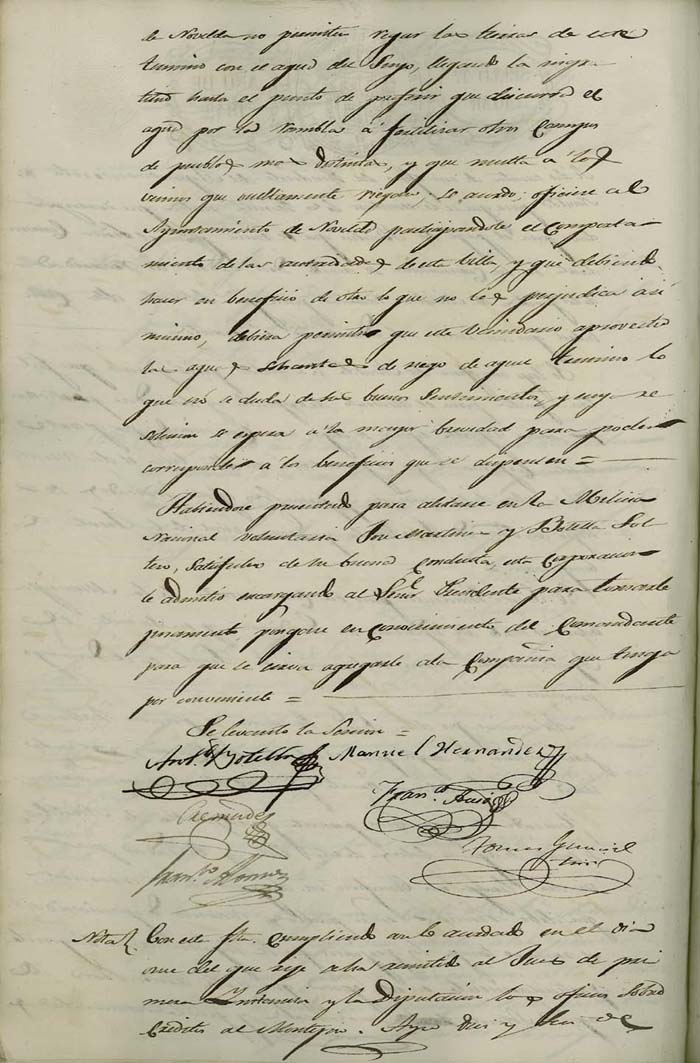 de Novelda no permitir regar las tierras de este
termino con el agua del Suyo, llegando la ingra
titud hasta el punto de preferir que discurra el
agua por la rambla á fertilizar otros Campos
de pueblos mas distintos, y que multa a los
vecinos que ocultamente riegan; se acordó; oficiese al
Ayuntamiento de Novelda participandole el Comporta-
miento de las autoridades de esta Villa, y que debiendo
hacer en beneficio de otro lo que no les perjudica asi
mismo, debiera permitir que este Vecindario aproveche
las aguas sobrantes de riego de aquel termino lo
que no se duda de sus buenos Sentimientos, y cuya re
solucion se espera á la mayor brevedad para poder
corresponder á los beneficios que se dispensen =
Habiendose presentado para alistarse en la Milicia
Nacional Voluntaria Jose Martinez y Botella Sol
tero, Satisfechos de su buena Conducta, esta Corporacion
le admitio encargando al Señor Presidente para tomarle
juramento pongase en Conocimiento del Comandante
para que se sirva agregarle a la Compañia que tenga
por conveniente =
Se levanto la Sesion =
Anto. Botella Manuel Hernandez
Franco.
Cremades
Tomas
Franco. Alonso
Nota Con esta fha. Cumpliendo con lo acordado en el dia
once del que rige se ha remitido al Juez de pri
mera Instancia y la Diputación los oficios sobre
Creditos al Montepio. Aspe diez y seis de